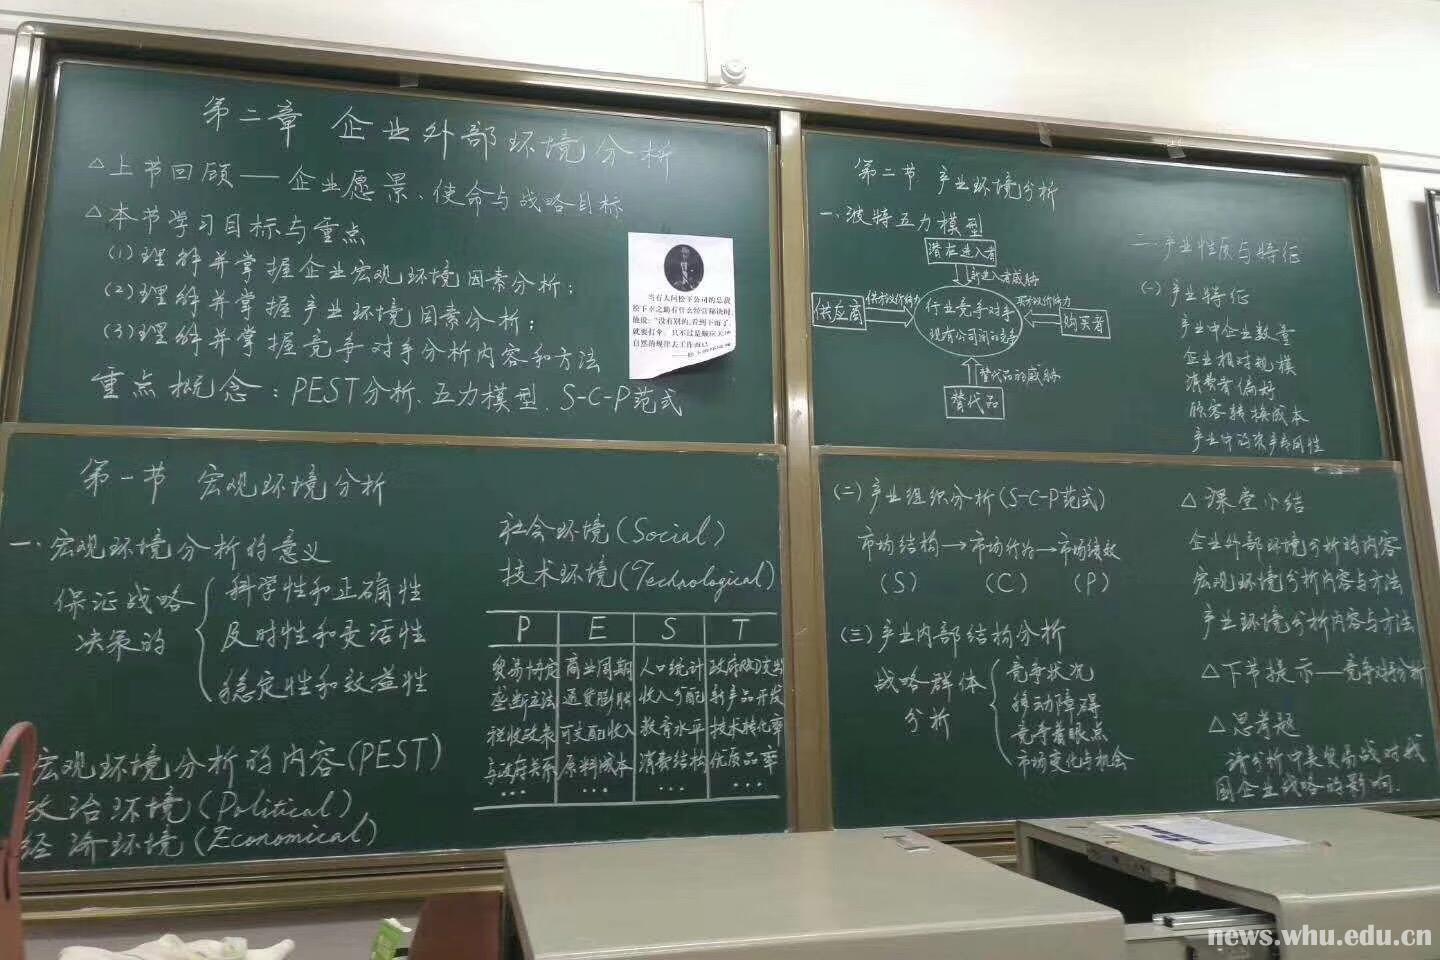 第二章 企业外部环境分析
△上节回顾——企业愿景、使命与战略目标
△本节学习目标与重点
(1)理解并掌握企业宏观环境因素分析;
(2)理解并掌握产业环境因素分析;
(3)理解并掌握竞争对手分析内容和方法
重点概念:PEST分析、五力模型、S-C-P范式
当有人问松下公司的总裁
松下幸之助有什么经营秘诀时,
他说:“没有别的,看到下雨了,
就要打伞。只不过是顺应大
自然的规律去工作而已
第一节 宏观环境分析
一、宏观环境分析的意义
保证战略
决策的
科学性和正确性
及时性和灵活性
稳定性和效益性
宏观环境分析的内容(PEST)
政治环境(Political)
经济环境(Economical)
社会环境(Social)
技术环境(Technological)
P E S T
贸易协定 商业周期 人口统计 政府R&D支出
垄断立法 通货膨胀 收入分配 新产品开发
税收政策 可支配收入 教育水平 技术转化率
与政府关系 原料成本 消费结构 优质品率
... ... ... ...
第二节 产业环境分析
一、波特五力模型
潜在进入者
新进入者威胁
供应商
供方议价能力
行业竞争对手
现有公司间的竞争
买方议价能力
购买者
替代品的威胁
替代品
二、产业性质与特征
(一)产业特征
产业中企业数量
企业相对规模
消费者偏好
顾客转换成本
产业中的资产专用性
(二)产业组织分析(S-C-P范式)
市场结构→市场行为→市场绩效
(S) (C) (P)
(三)产业内部结构分析
战略群体
分析
竞争状况
移动障碍
竞争着眼点
市场变化与机会
△课堂小结
企业外部环境分析的内容
宏观环境分析内容与方法
产业环境分析内容与方法
△下节提示——竞争对手分析
△思考题
请分析中美贸易战对我
国企业战略的影响.
news.whu.edu.cn